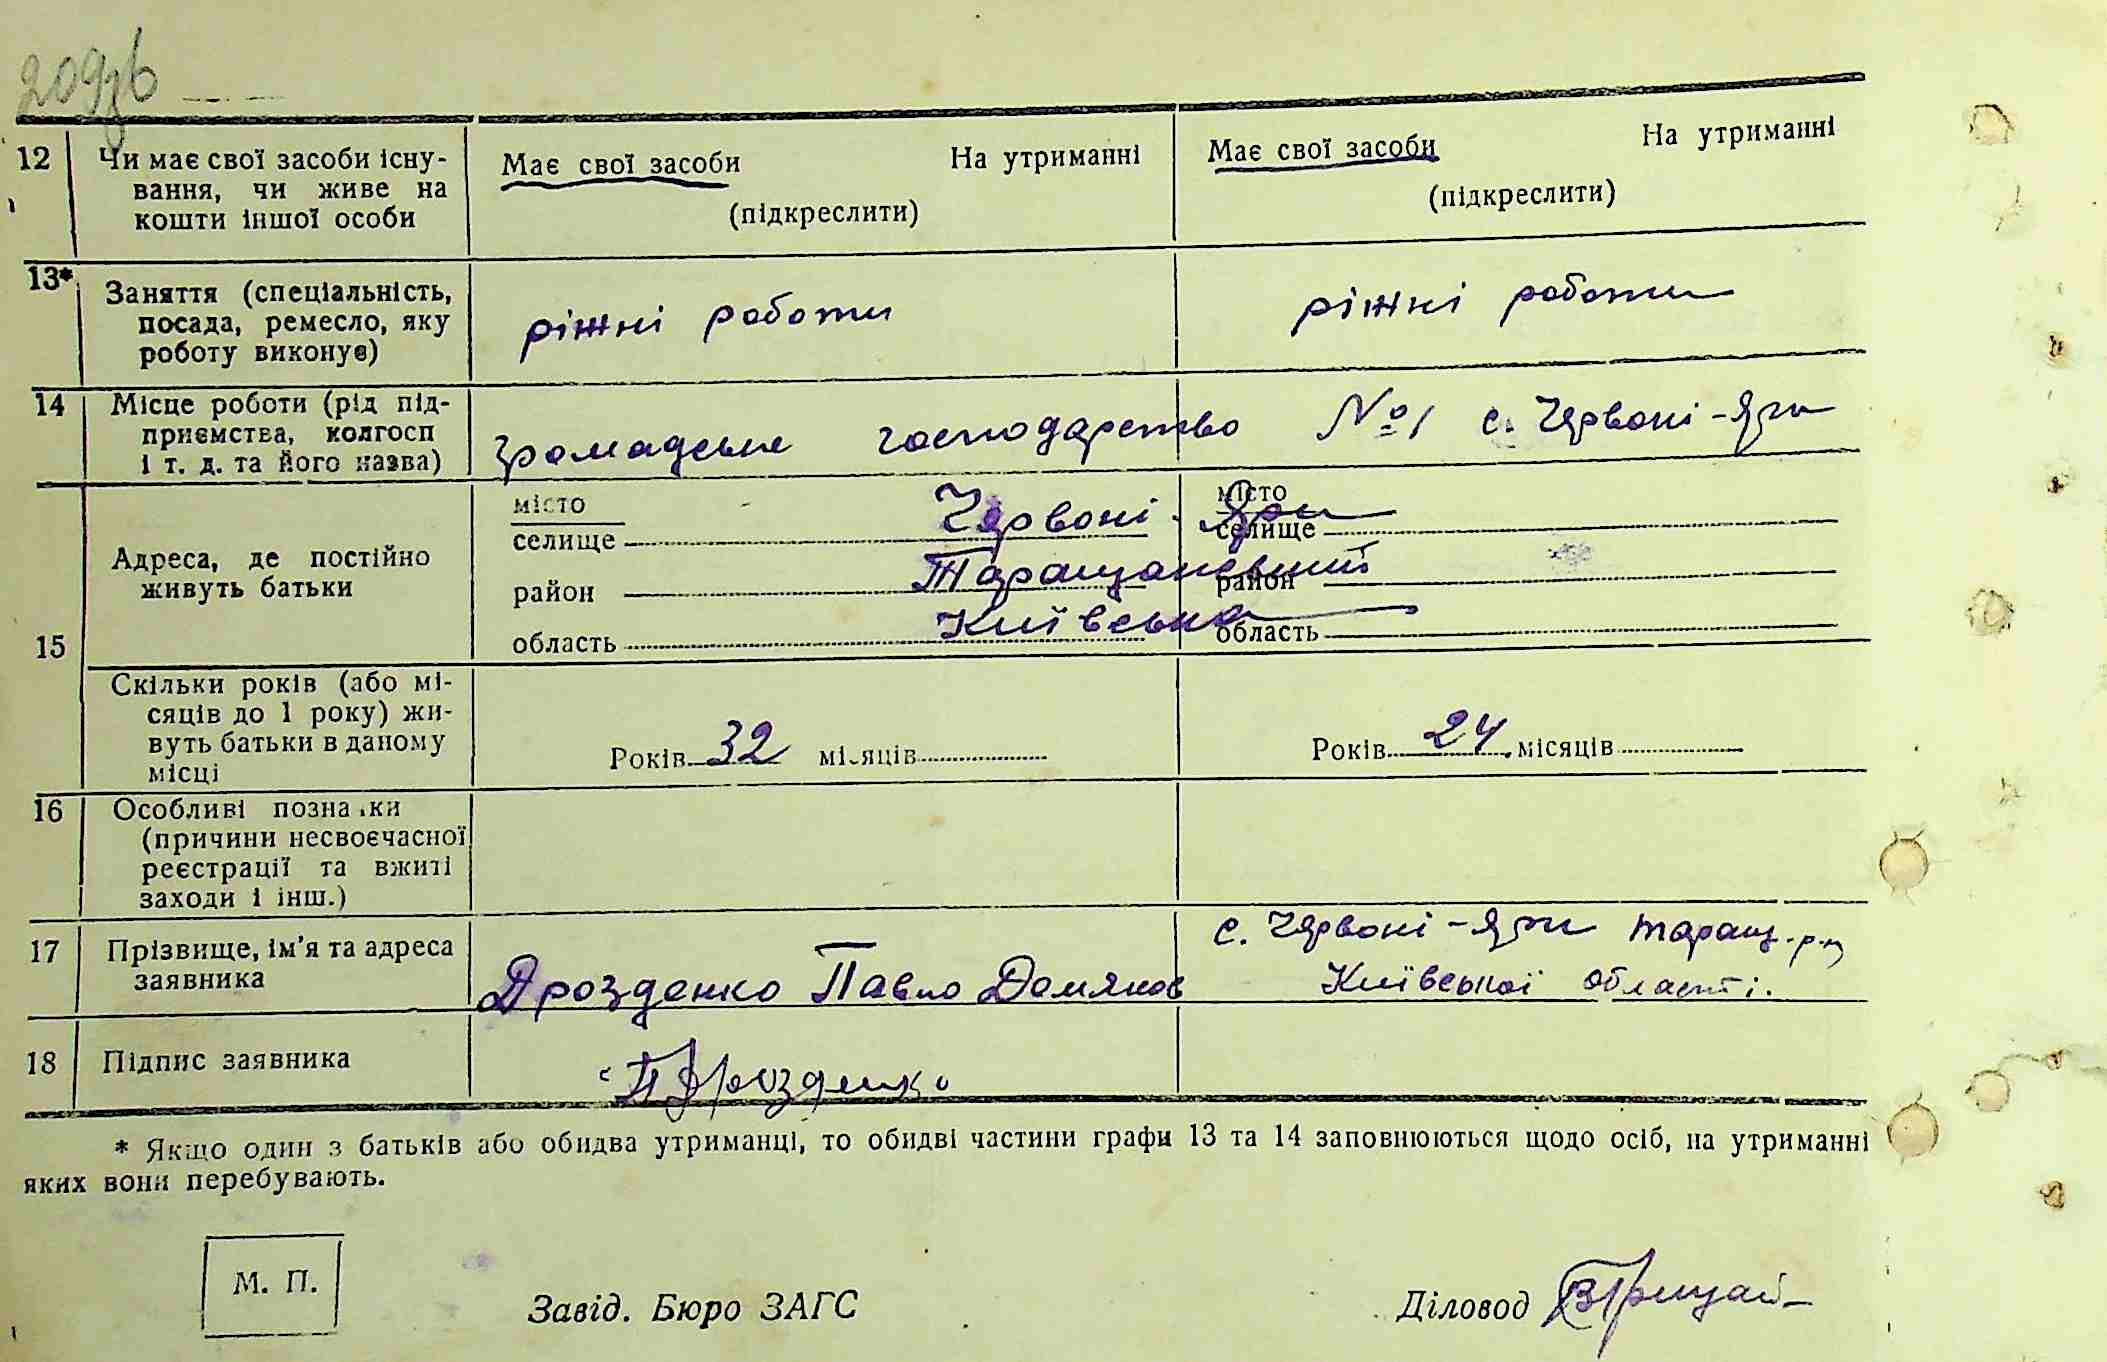 209зв
12 Чи має свої засоби існу-
вання, чи живе на
кошти іншої особи
Має свої засоби На утриманні
(підкреслити)
Має свої засоби На утриманні
(підкреслити)
13* Заняття (спеціальність,
посада, ремесло, яку
роботу виконує)
ріжні роботи
ріжні роботи
14 Місце роботи (рід під-
приємства, колгосп
і т. д. та його назва)
громадське господарство №1 с. Червоні-Яри
15 Адреса, де постійно
живуть батьки
місто
селище Червоні-Яри
район Таращанський
область Київська
місто
селище
район
область
Скільки років (або мі-
сяців до 1 року) жи-
вуть батьки в даному
місці
Років 32 місяців
Років 24 місяців
16 Особливі познаки
(причини несвоєчасної
реєстрації та вжиті
заходи і інш.)
17 Прізвище, ім'я та адреса
заявника
Дрозденко Павло Демянов
с. Червоні-Яри Таращ. р-н
Київської області.
18 Підпис заявника
Дрозденко
* Якщо один з батьків або обидва утриманці, то обидві частини графи 13 та 14 заповнюються щодо осіб, на утриманні
яких вони перебувають.
М. П.
Завід. Бюро ЗАГС
Діловод Грицай